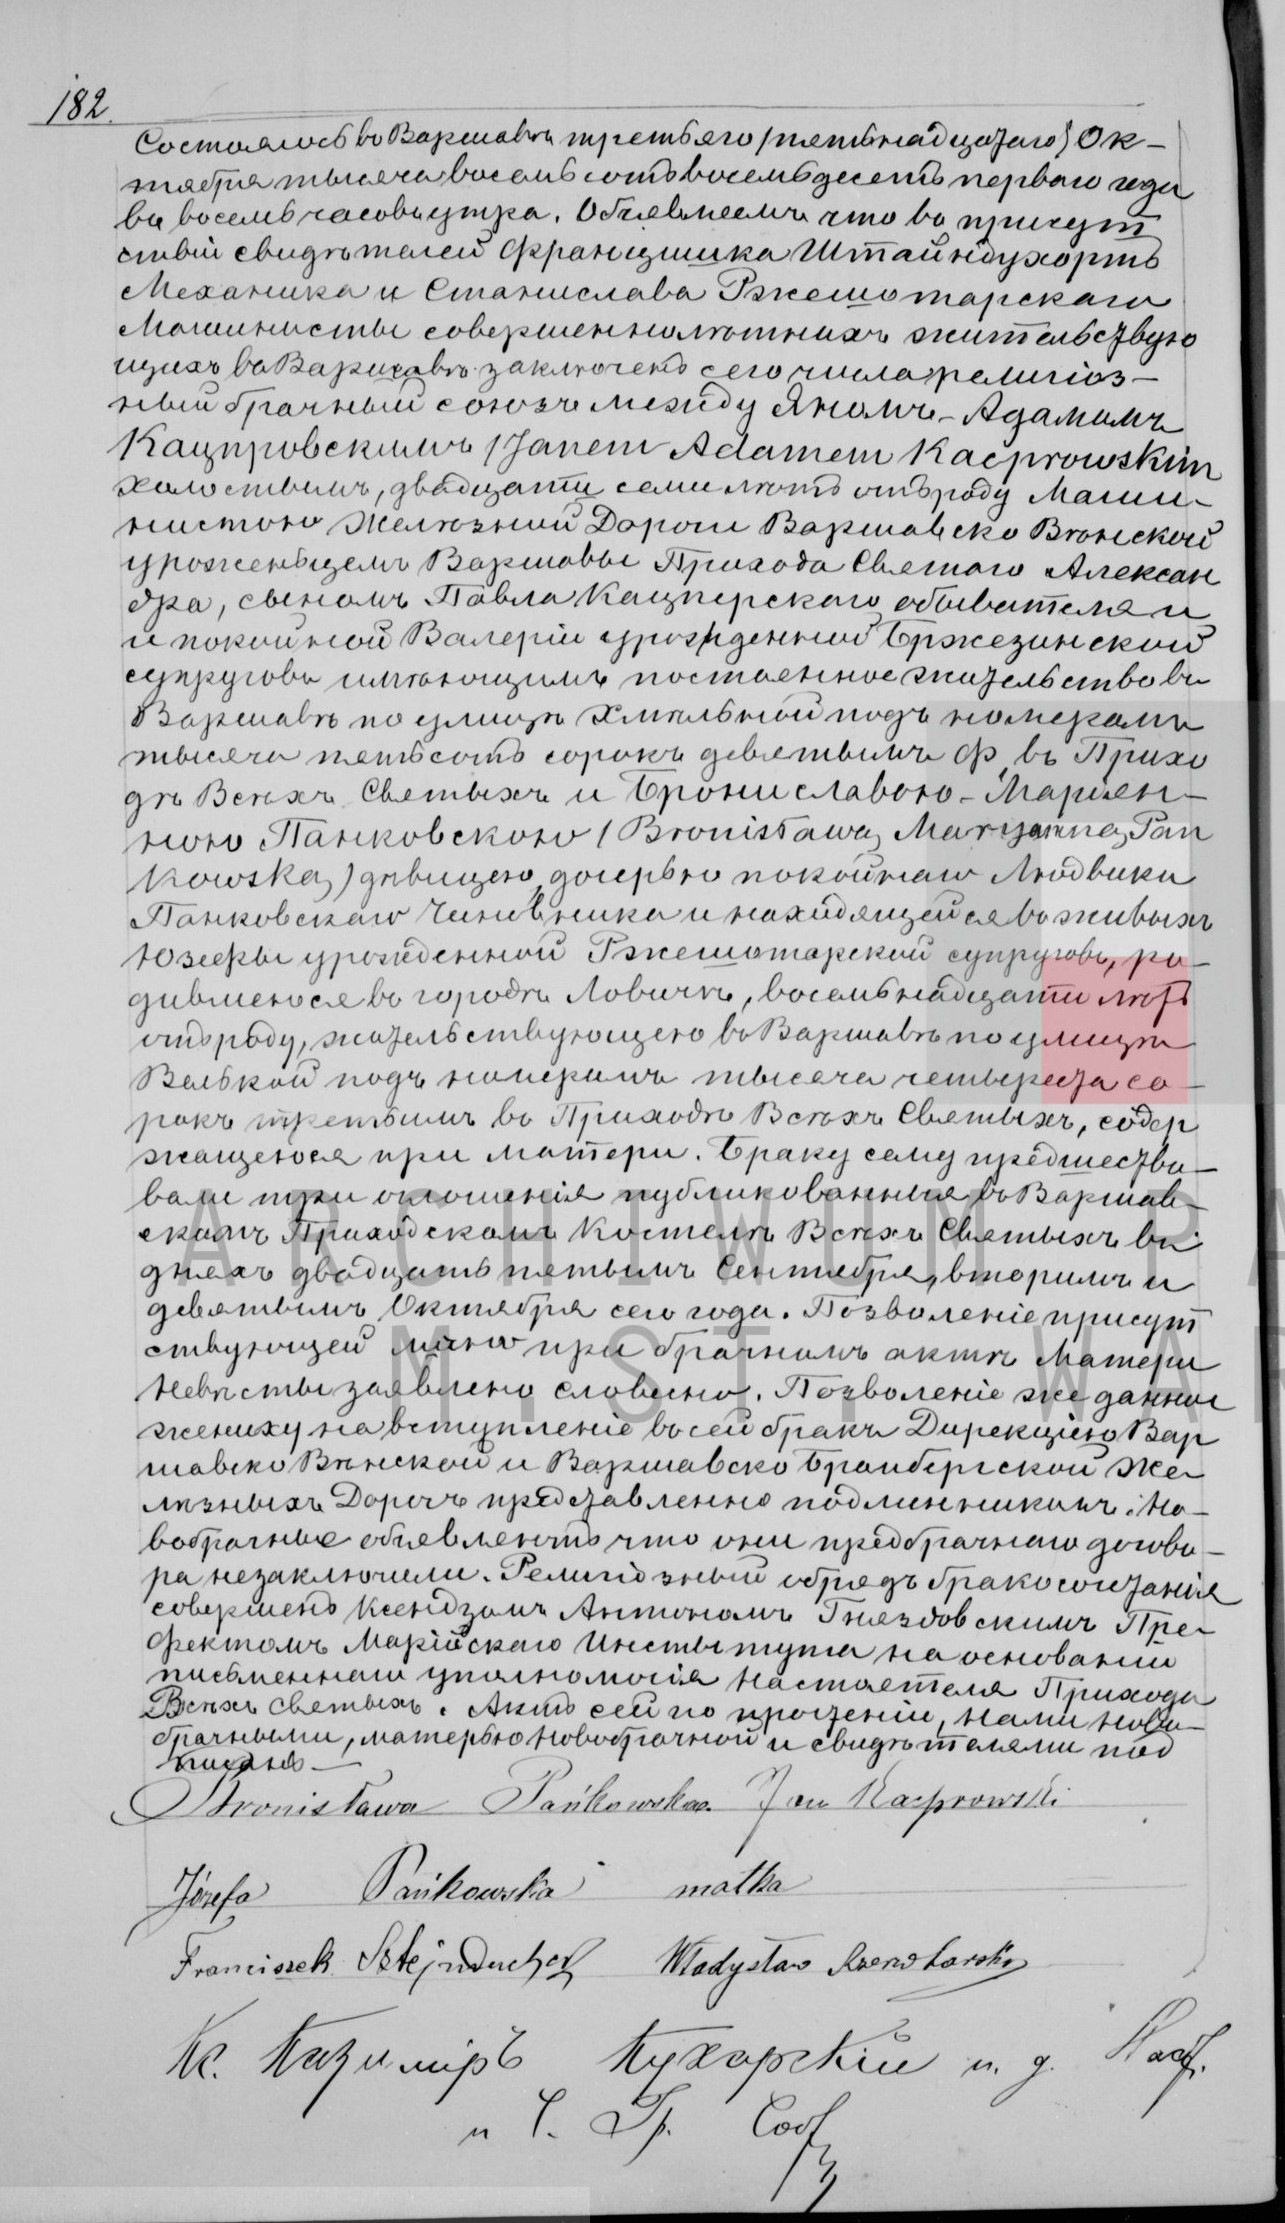 182.
Состоялось въ Варшавѣ третьяго /пятьнадцатаго/ Ок-
тября тысяча восемь сотъ восемьдесятъ перваго года
въ восемь часовъ утра. Объявляемъ что въ присут
ствіи свидѣтелей Францишка Штайндухортъ
Механика и Станислава Ржешотарскаго
Машинисты совершеннолѣтнихъ жительствую
щихъ въ Варшавѣ заключенъ сего числа религіоз-
ный брачный союзъ между Яномъ-Адамомъ
Кацпровскимъ /Janem Adamem Kacprowskim
холостымъ, двадцати семи лѣтъ отъ роду Маши-
нистою Желѣзной Дороги Варшавско Вѣнской
уроженьцемъ Варшавы Прихода Святаго Алексан
дра, сыномъ Павла Кацперскаго обывателя и
и покойной Валеріи урожденной Бржезинской
супруговъ имѣющимъ постоянное жительство въ
Варшавѣ по улицѣ Хмѣльной подъ номеромъ
тысяча пятьсотъ сорокъ девятымъ Ф, въ Прихо
дѣ Всѣхъ Святыхъ и Брониславою-Маріян-
ною Панковскою /Bronisławą Maryanną Pan
kowską/ дѣвицею, дочерью покойнаго Людвика
Панковскаго Чиновника и находящейся въ живыхъ
Юзефы урожденной Ржешотарской супруговъ, ро-
дившеюся въ городѣ Ловичѣ, восемьнадцати лѣтъ
отъ роду, жительствующею въ Варшавѣ по улицѣ
Велькой подъ номеромъ тысяча четыреста со-
рокъ третьимъ въ Приходѣ Всѣхъ Святыхъ, содер
жащеюся при матери. Браку сему предшество-
вали три оглошенія публикованныя въ Варшав-
скомъ Приходскомъ Костелѣ Всѣхъ Святыхъ въ
дняхъ двадцать пятымъ Сентября, вторымъ и
девятымъ Октября сего года. Позволеніе присут
ствующей лично при брачномъ актѣ Матери
Невѣсты заявлено словесно. Позволеніе же данное
жениху на вступленіе въ сей бракъ Дирекціею Вар
шавско Вѣнской и Варшавско Бромбергской Же-
лѣзныхъ Дорогъ представленно подлинникомъ. Но-
вобрачные объявляютъ что они предбрачнаго догово-
ра незаключили. Религіозный обрядъ бракосочетанія
совершенъ Ксендзомъ Антономъ Гнѣздовскимъ Пре-
фектомъ Маріинскаго Инстытута на основаніи
письменнаго уполномочія Настоятеля Прихода
Всѣхъ Святыхъ. Актъ сей по прочтеніи, нами ново-
брачными, матерью новобрачной и свидѣтелями под
писанъ
Bronisława Pańkowska Jan Kacprowski
Józefa Pańkowska matka
Franciszek Sztejnduchert Władysław Rzeszotarski
Кс. Казиміръ Кухарскій и. д. Наст.
и Ч. Гр. Сост
ARCHIWUM PA
M. ST. WAR